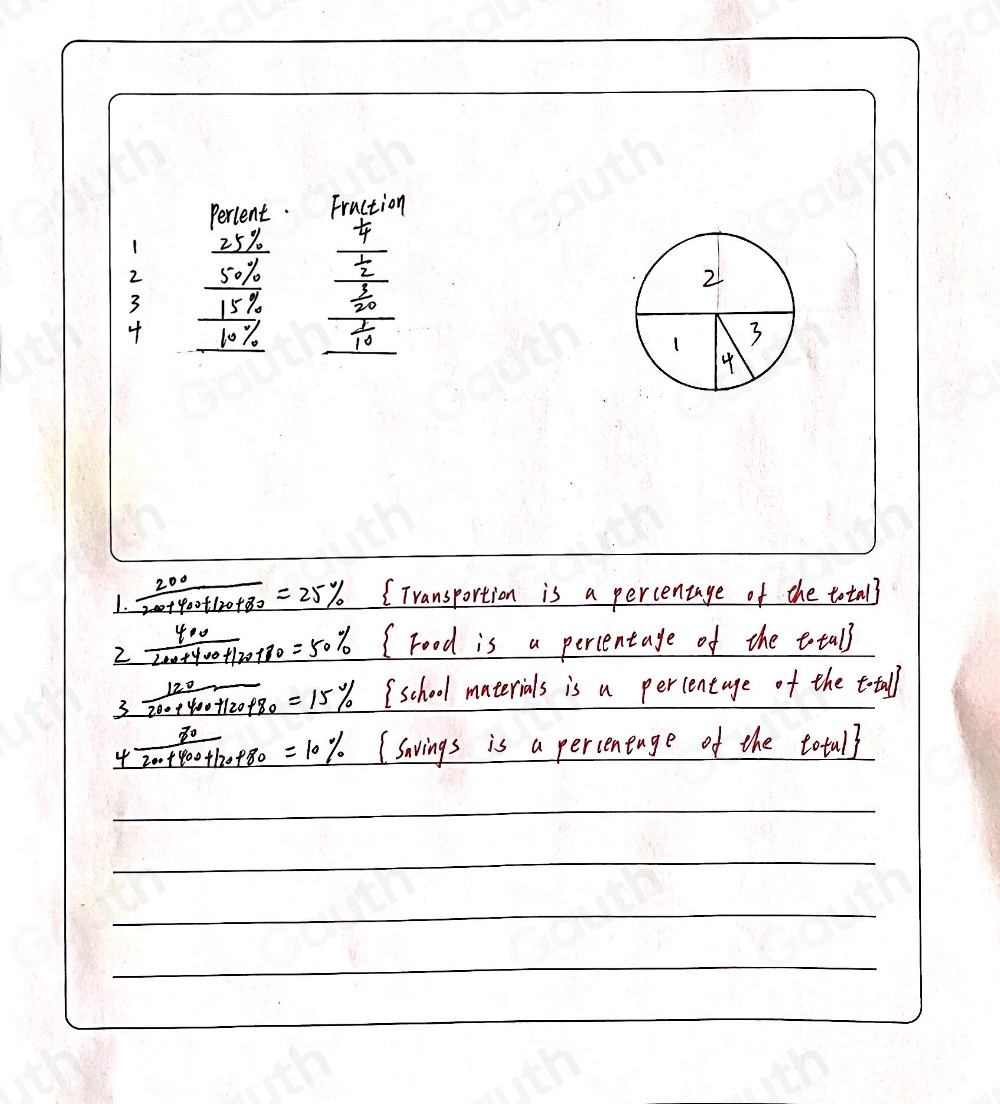 Percent . Fraction
1 25% 1/4
2 50% 1/2
3 15% 3/20
4 10% 1/10
2
1 4 3
1. 200/200+400+120+80 = 25% {Transportion is a percentage of the total}
2 400/200+400+120+80 = 50% { Food is a percentage of the total}
3 120/200+400+120+80 = 15% {school materials is a percentage of the total}
4 80/200+400+120+80 = 10% {Savings is a percentage of the total}
Gauth